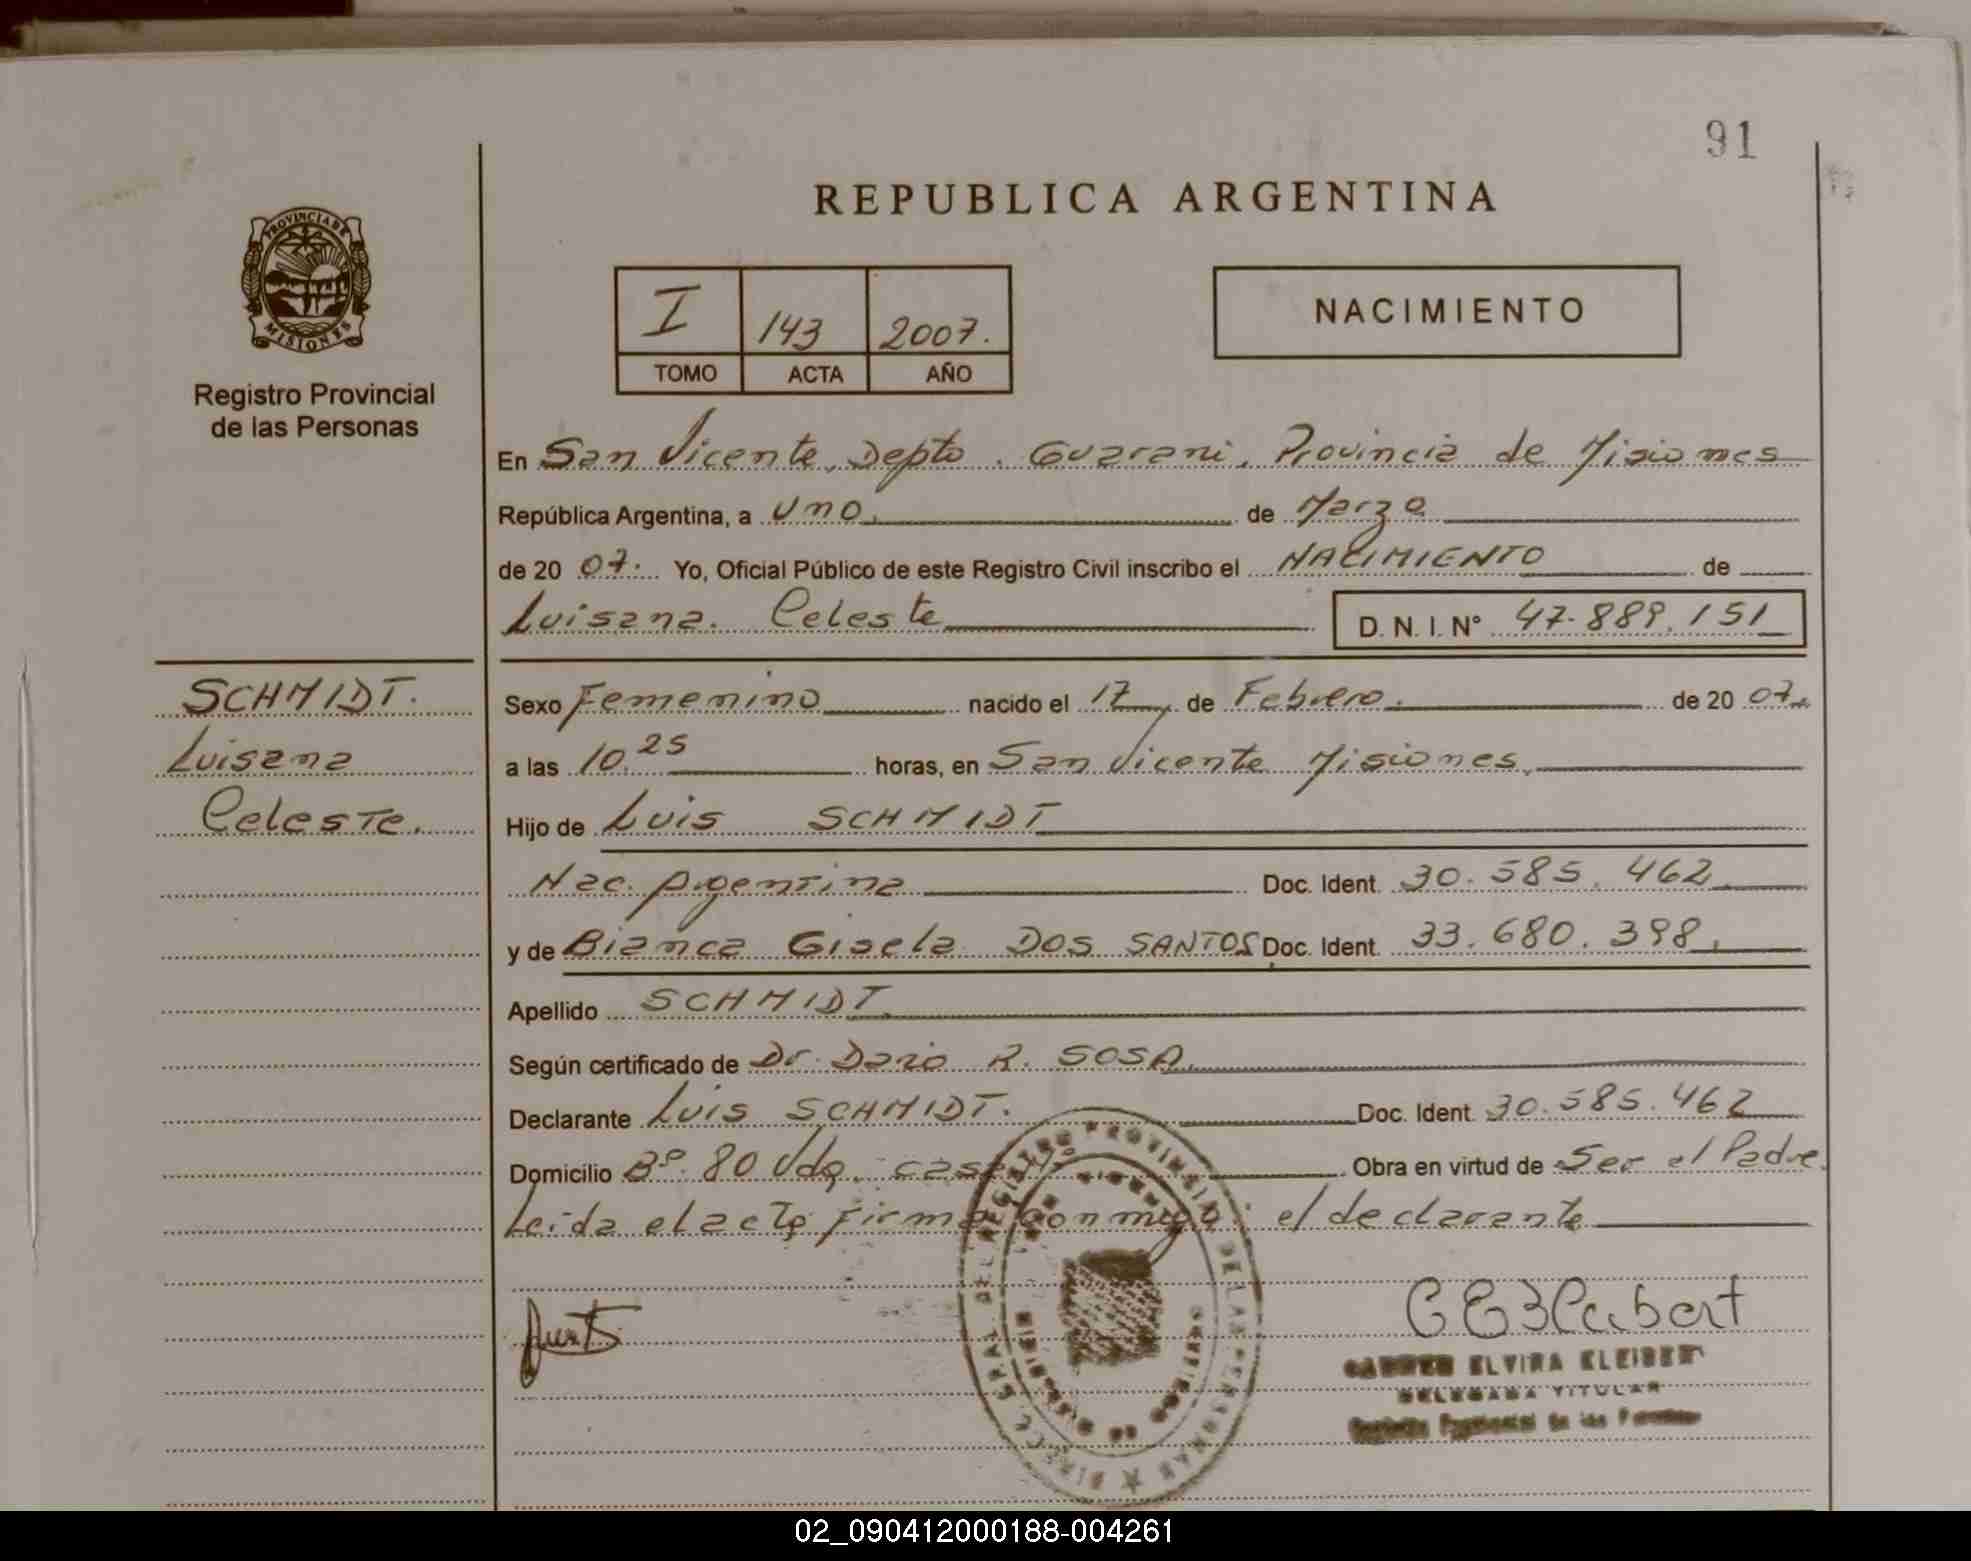 91
REPUBLICA ARGENTINA
PROVINCIA DE
MISIONES
Registro Provincial
de las Personas
I 143 2007.
TOMO ACTA AÑO
NACIMIENTO
En San Vicente, Depto. Guarani, Provincia de Misiones
República Argentina, a Uno. de Marzo
de 20 07. Yo, Oficial Público de este Registro Civil inscribo el NACIMIENTO de
Luisana. Celeste D. N. I. N° 47.889.151
SCHMIDT.
Luisana
Celeste.
Sexo Femenino nacido el 17 de Febrero. de 20 07.
a las 10.25 horas, en San Vicente Misiones.
Hijo de Luis SCHMIDT
Nac. Argentina Doc. Ident. 30.585.462
y de Bianca Gisela DOS SANTOS Doc. Ident. 33.680.398.
Apellido SCHMIDT
Según certificado de Dr. Dario R. SOSA.
Declarante Luis SCHMIDT. Doc. Ident. 30.585.462
Domicilio B° 80 Vdas. casa Obra en virtud de Ser el Padre.
Leida el acta, firma conmigo: el declarante
ELVIRA KLEIBER
DELEGADA TITULAR
Registro Provincial de las Personas
DEL REGISTRO PROVINCIAL DE LAS PERSONAS
02_090412000188-004261